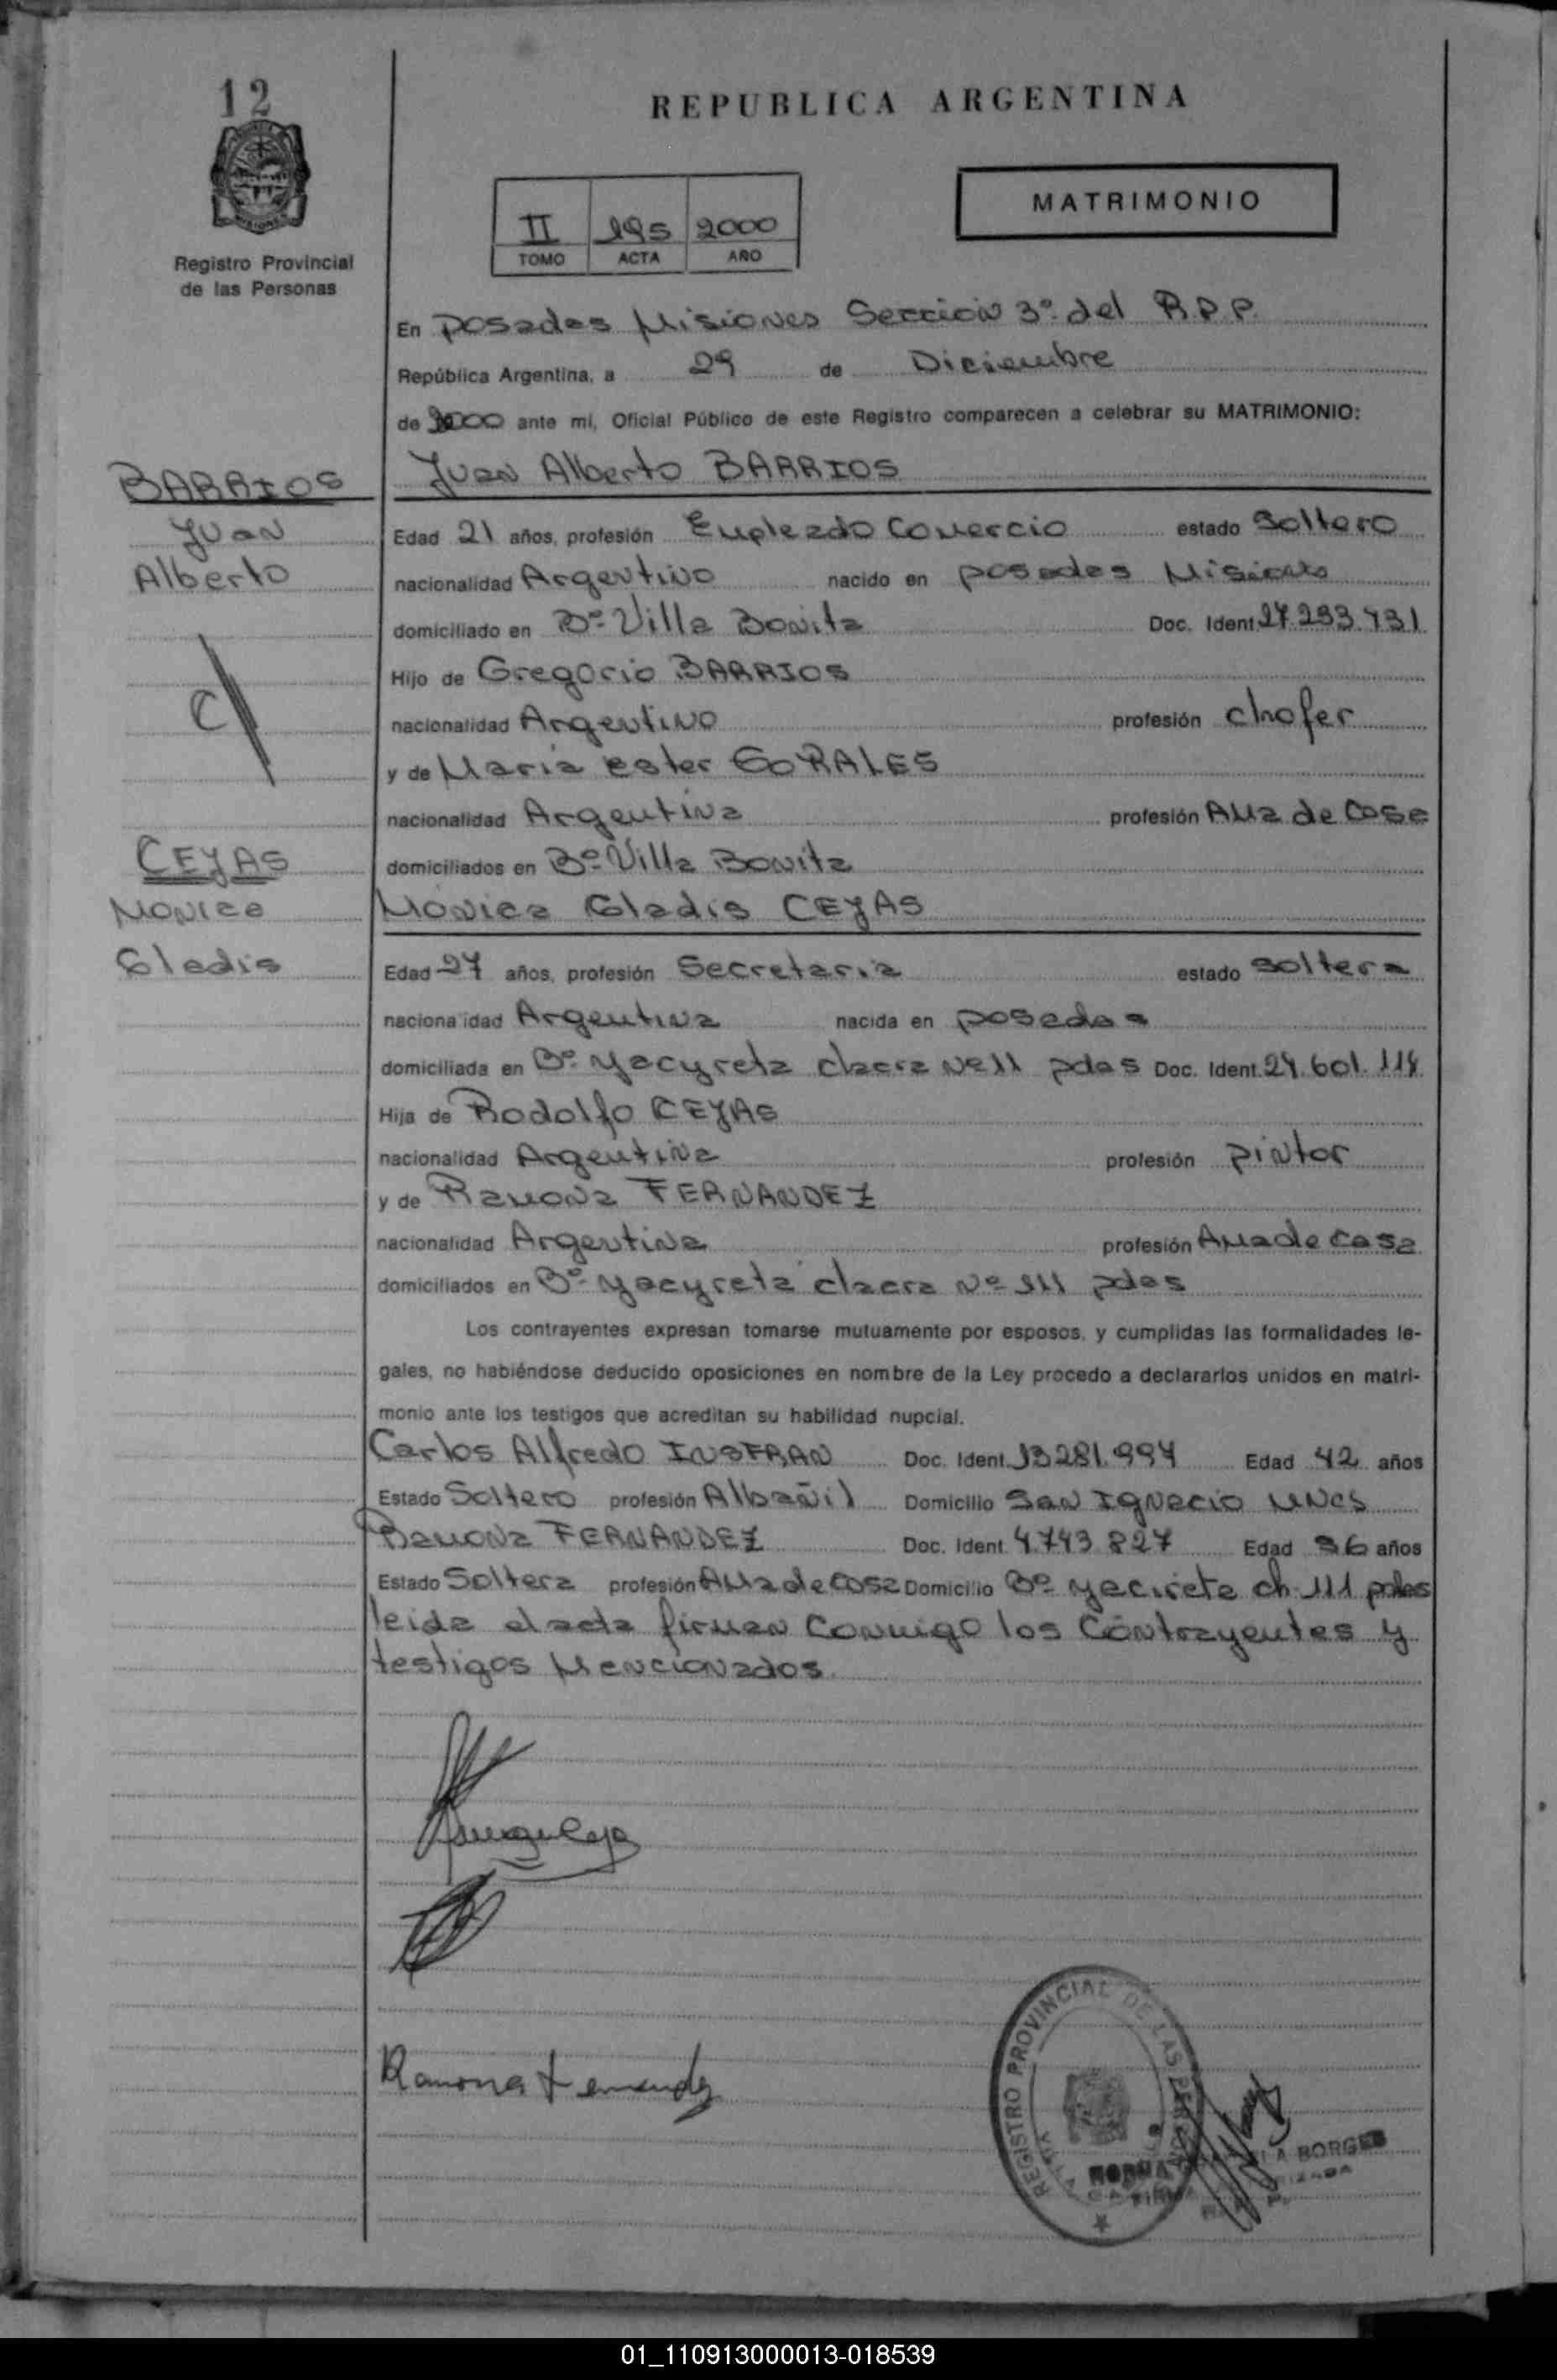 12
REPUBLICA ARGENTINA
MATRIMONIO
II 195 2000
TOMO ACTA AÑO
Registro Provincial
de las Personas
En Posadas Misiones Sección 3º del R.P.P.
República Argentina, a 29 de Diciembre
de 2000 ante mi, Oficial Público de este Registro comparecen a celebrar su MATRIMONIO:
BARRIOS
Juan
Alberto
Juan Alberto BARRIOS
Edad 21 años, profesión Empleado Comercio estado Soltero
nacionalidad Argentino nacido en posadas Misiones
domiciliado en Bº Villa Bonita Doc. Ident.
Hijo de Gregorio BARRIOS
nacionalidad Argentino profesión chofer
y de Maria Ester GORALES
nacionalidad Argentina profesión Ama de Casa
domiciliados en Bº Villa Bonita
CEJAS
Monica
Gladis
Mónica Gladis CEJAS
Edad 27 años, profesión Secretaria estado soltera
nacionalidad Argentina nacida en posadas
domiciliada en Bº Yacyreta chacra pdas Doc. Ident. 24.601.114
Hija de Rodolfo CEJAS
nacionalidad Argentina profesión pintor
y de Ramona FERNANDEZ
nacionalidad Argentina profesión Ama de Casa
domiciliados en Bº Yacyreta chacra Nº 111 pdas
Los contrayentes expresan tomarse mutuamente por esposos, y cumplidas las formalidades le-
gales, no habiéndose deducido oposiciones en nombre de la Ley procedo a declararlos unidos en matri-
monio ante los testigos que acreditan su habilidad nupcial.
Carlos Alfredo INSFRAN Doc. Ident. 13281.994 Edad 42 años
Estado Soltero profesión Albañil Domicilio San Ignacio Mnes
Ramona FERNANDEZ Doc. Ident. 4.743.827 Edad 56 años
Estado Soltera profesión Ama de Casa Domicilio Bº Yacirete ch. 111 pdas
leida el acta firman Conmigo los Contrayentes y
testigos Mencionados.
Ramona Fernandez
REGISTRO PROVINCIAL DE LAS PERSONAS
NORMA BORGES
01_110913000013-018539